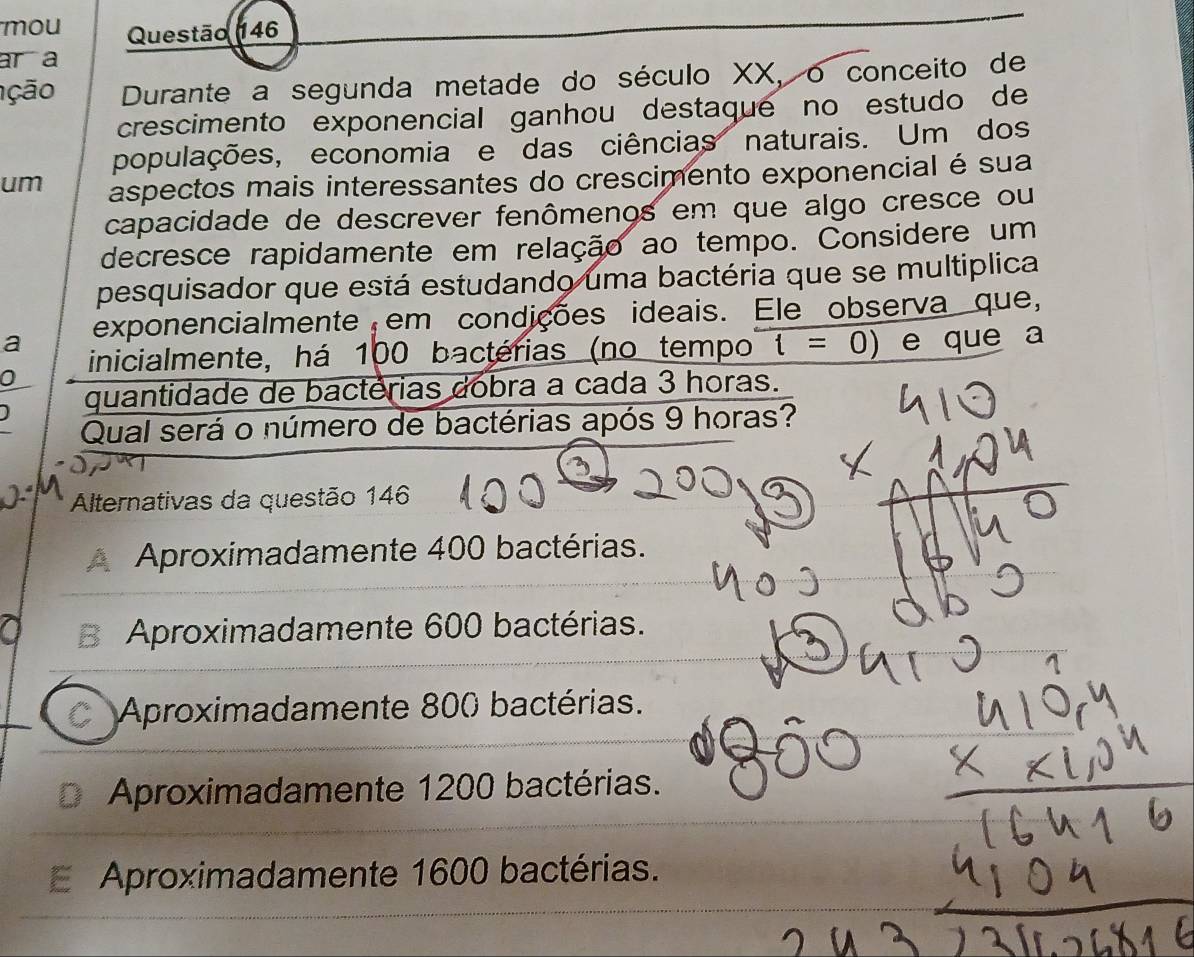 mou
ar a
ção
um
a
o
Questão 146
Durante a segunda metade do século XX, o conceito de
crescimento exponencial ganhou destaque no estudo de
populações, economia e das ciências naturais. Um dos
aspectos mais interessantes do crescimento exponencial é sua
capacidade de descrever fenômenos em que algo cresce ou
decresce rapidamente em relação ao tempo. Considere um
pesquisador que está estudando uma bactéria que se multiplica
exponencialmente em condições ideais. Ele observa que,
inicialmente, há 100 bactérias (no tempo t = 0) e que a
quantidade de bactérias dobra a cada 3 horas.
Qual será o número de bactérias após 9 horas?
Alternativas da questão 146
100 3 200 3
400
3
800
A Aproximadamente 400 bactérias.
B Aproximadamente 600 bactérias.
C Aproximadamente 800 bactérias.
D Aproximadamente 1200 bactérias.
E Aproximadamente 1600 bactérias.
410
x 1,04
410
410,4
x x1,04
16416
4104